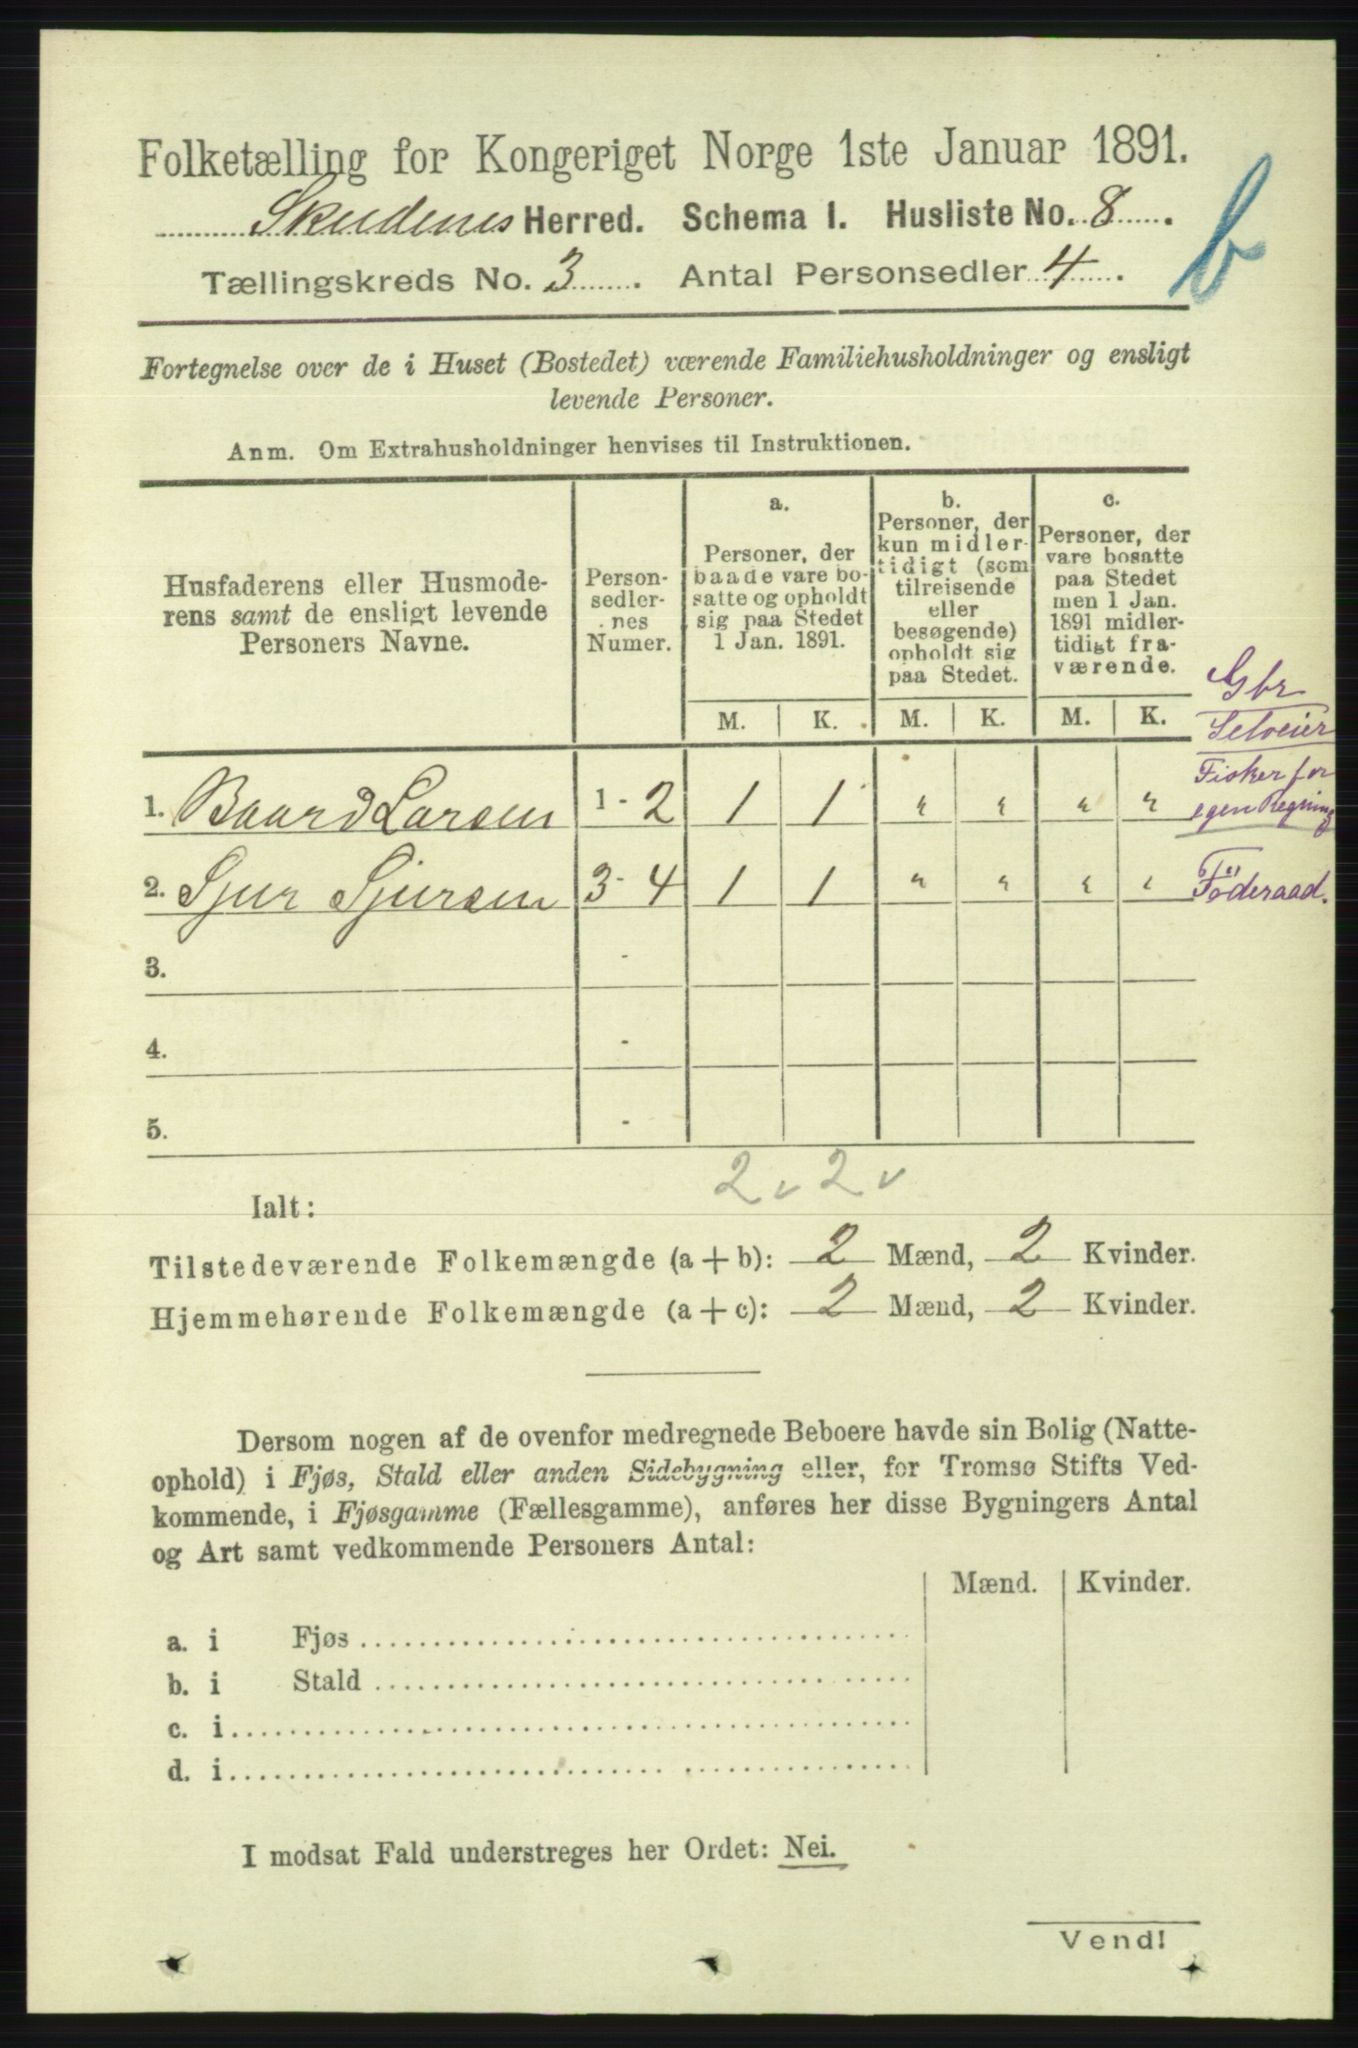 Folketælling for Kongeriget Norge 1ste Januar 1891.
Skudenes Herred. Schema I. Husliste No. 8.
b
Tællingskreds No. 3. Antal Personsedler 4.
Fortegnelse over de i Huset (Bostedet) værende Familiehusholdninger og ensligt
levende Personer.
Anm. Om Extrahusholdninger henvises til Instruktionen.
Husfaderens eller Husmode-
rens samt de ensligt levende
Personers Navne.
Person-
sedler-
nes
Numer.
a.
Personer, der
baade vare bo-
satte og opholdt
sig paa Stedet
1 Jan. 1891.
b.
Personer, der
kun midler-
tidigt (som
tilreisende
eller
besøgende)
opholdt sig
paa Stedet.
c.
Personer, der
vare bosatte
paa Stedet
men 1 Jan.
1891 midler-
tidigt fra-
værende.
M. K. M. K. M. K.
Gbr
Selveier
Fisker for
egen Regning
1. Baard Larsen 1 - 2 1 1 " " " "
2. Sjur Sjursen 3 - 4 1 1 " " " " Föderaad.
3. -
4. -
5. -
2 v 2 v
Ialt:
Tilstedeværende Folkemængde (a + b): 2 Mænd, 2 Kvinder.
Hjemmehørende Folkemængde (a + c): 2 Mænd, 2 Kvinder.
Dersom nogen af de ovenfor medregnede Beboere havde sin Bolig (Natte-
ophold) i Fjøs, Stald eller anden Sidebygning eller, for Tromsø Stifts Ved-
kommende, i Fjøsgamme (Fællesgamme), anføres her disse Bygningers Antal
og Art samt vedkommende Personers Antal:
Mænd. Kvinder.
a. i Fjøs
b. i Stald
c. i
d. i
I modsat Fald understreges her Ordet: Nei.
Vend!